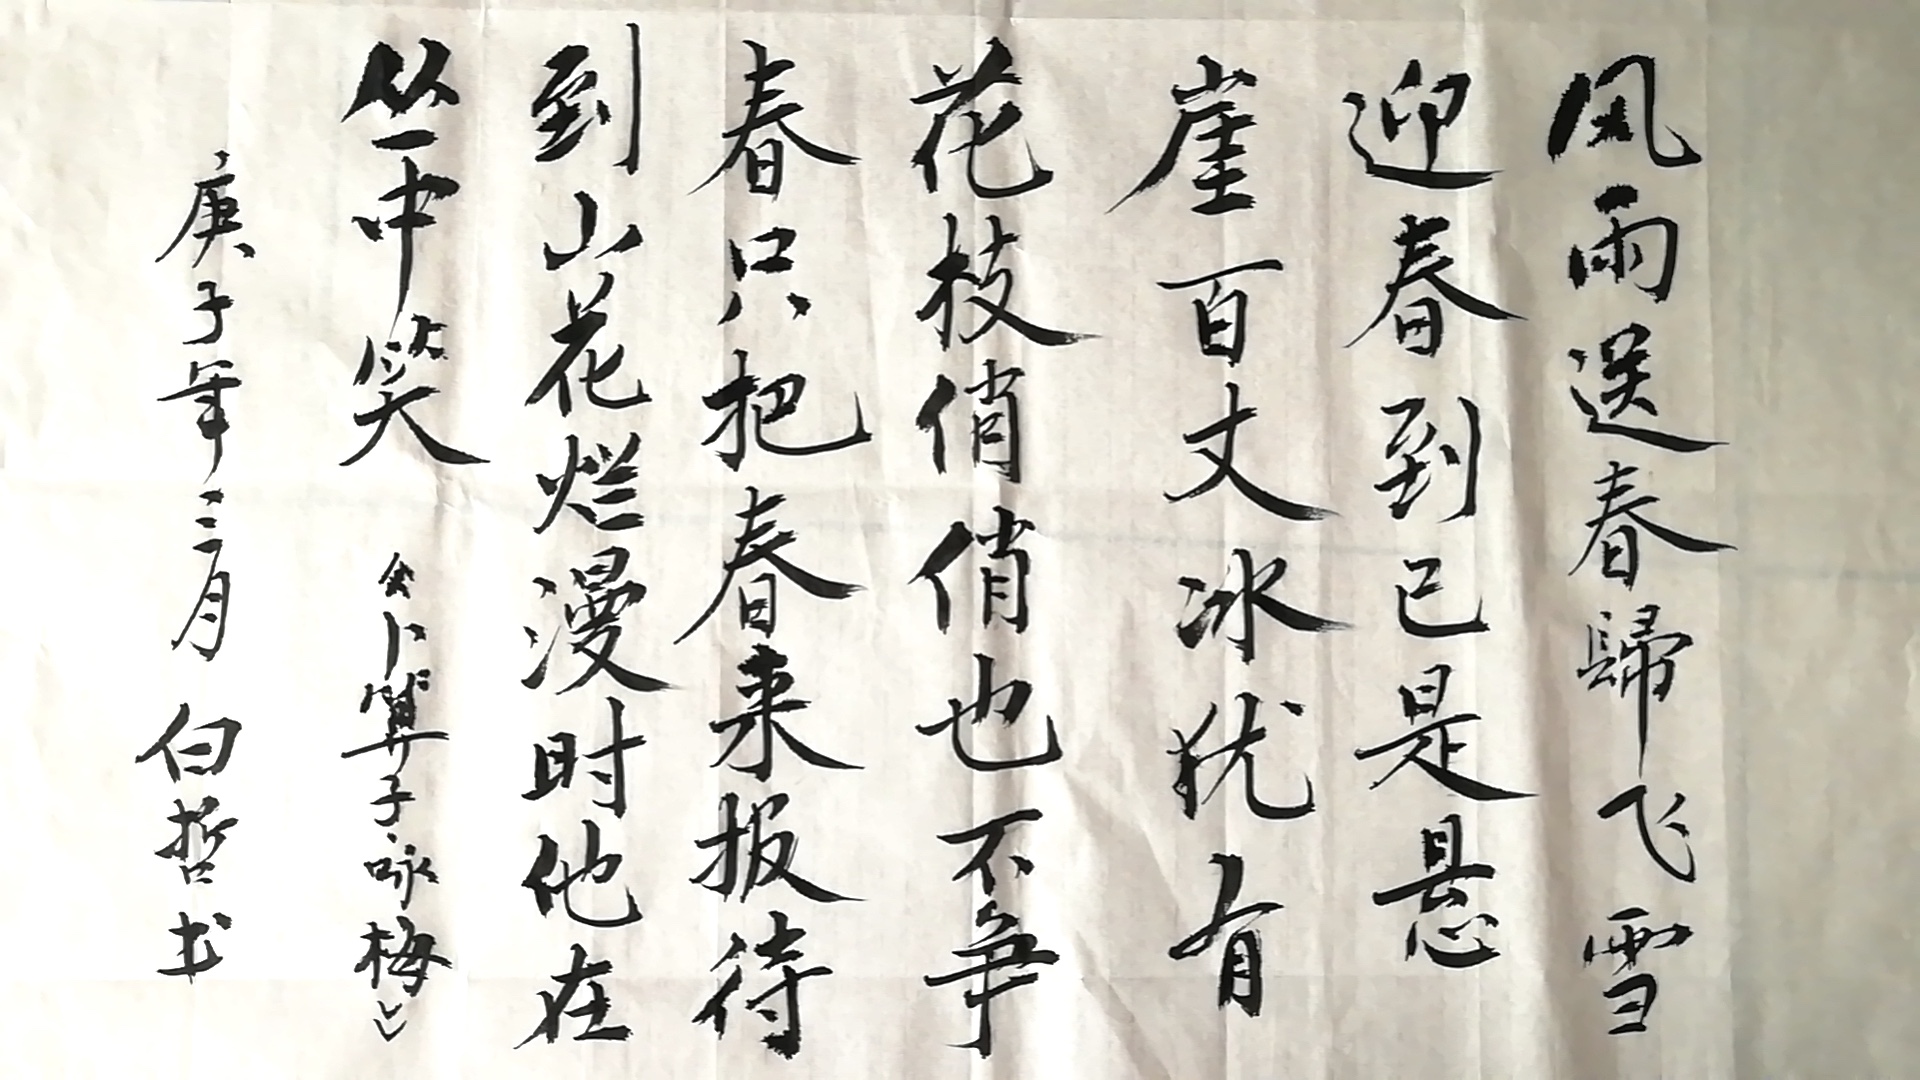 风雨送春歸飞雪
迎春到已是悬
崖百丈冰犹有
花枝俏俏也不争
春只把春来报待
到山花烂漫时他在
丛中笑 《卜算子·咏梅》
庚子年三月 白哲书